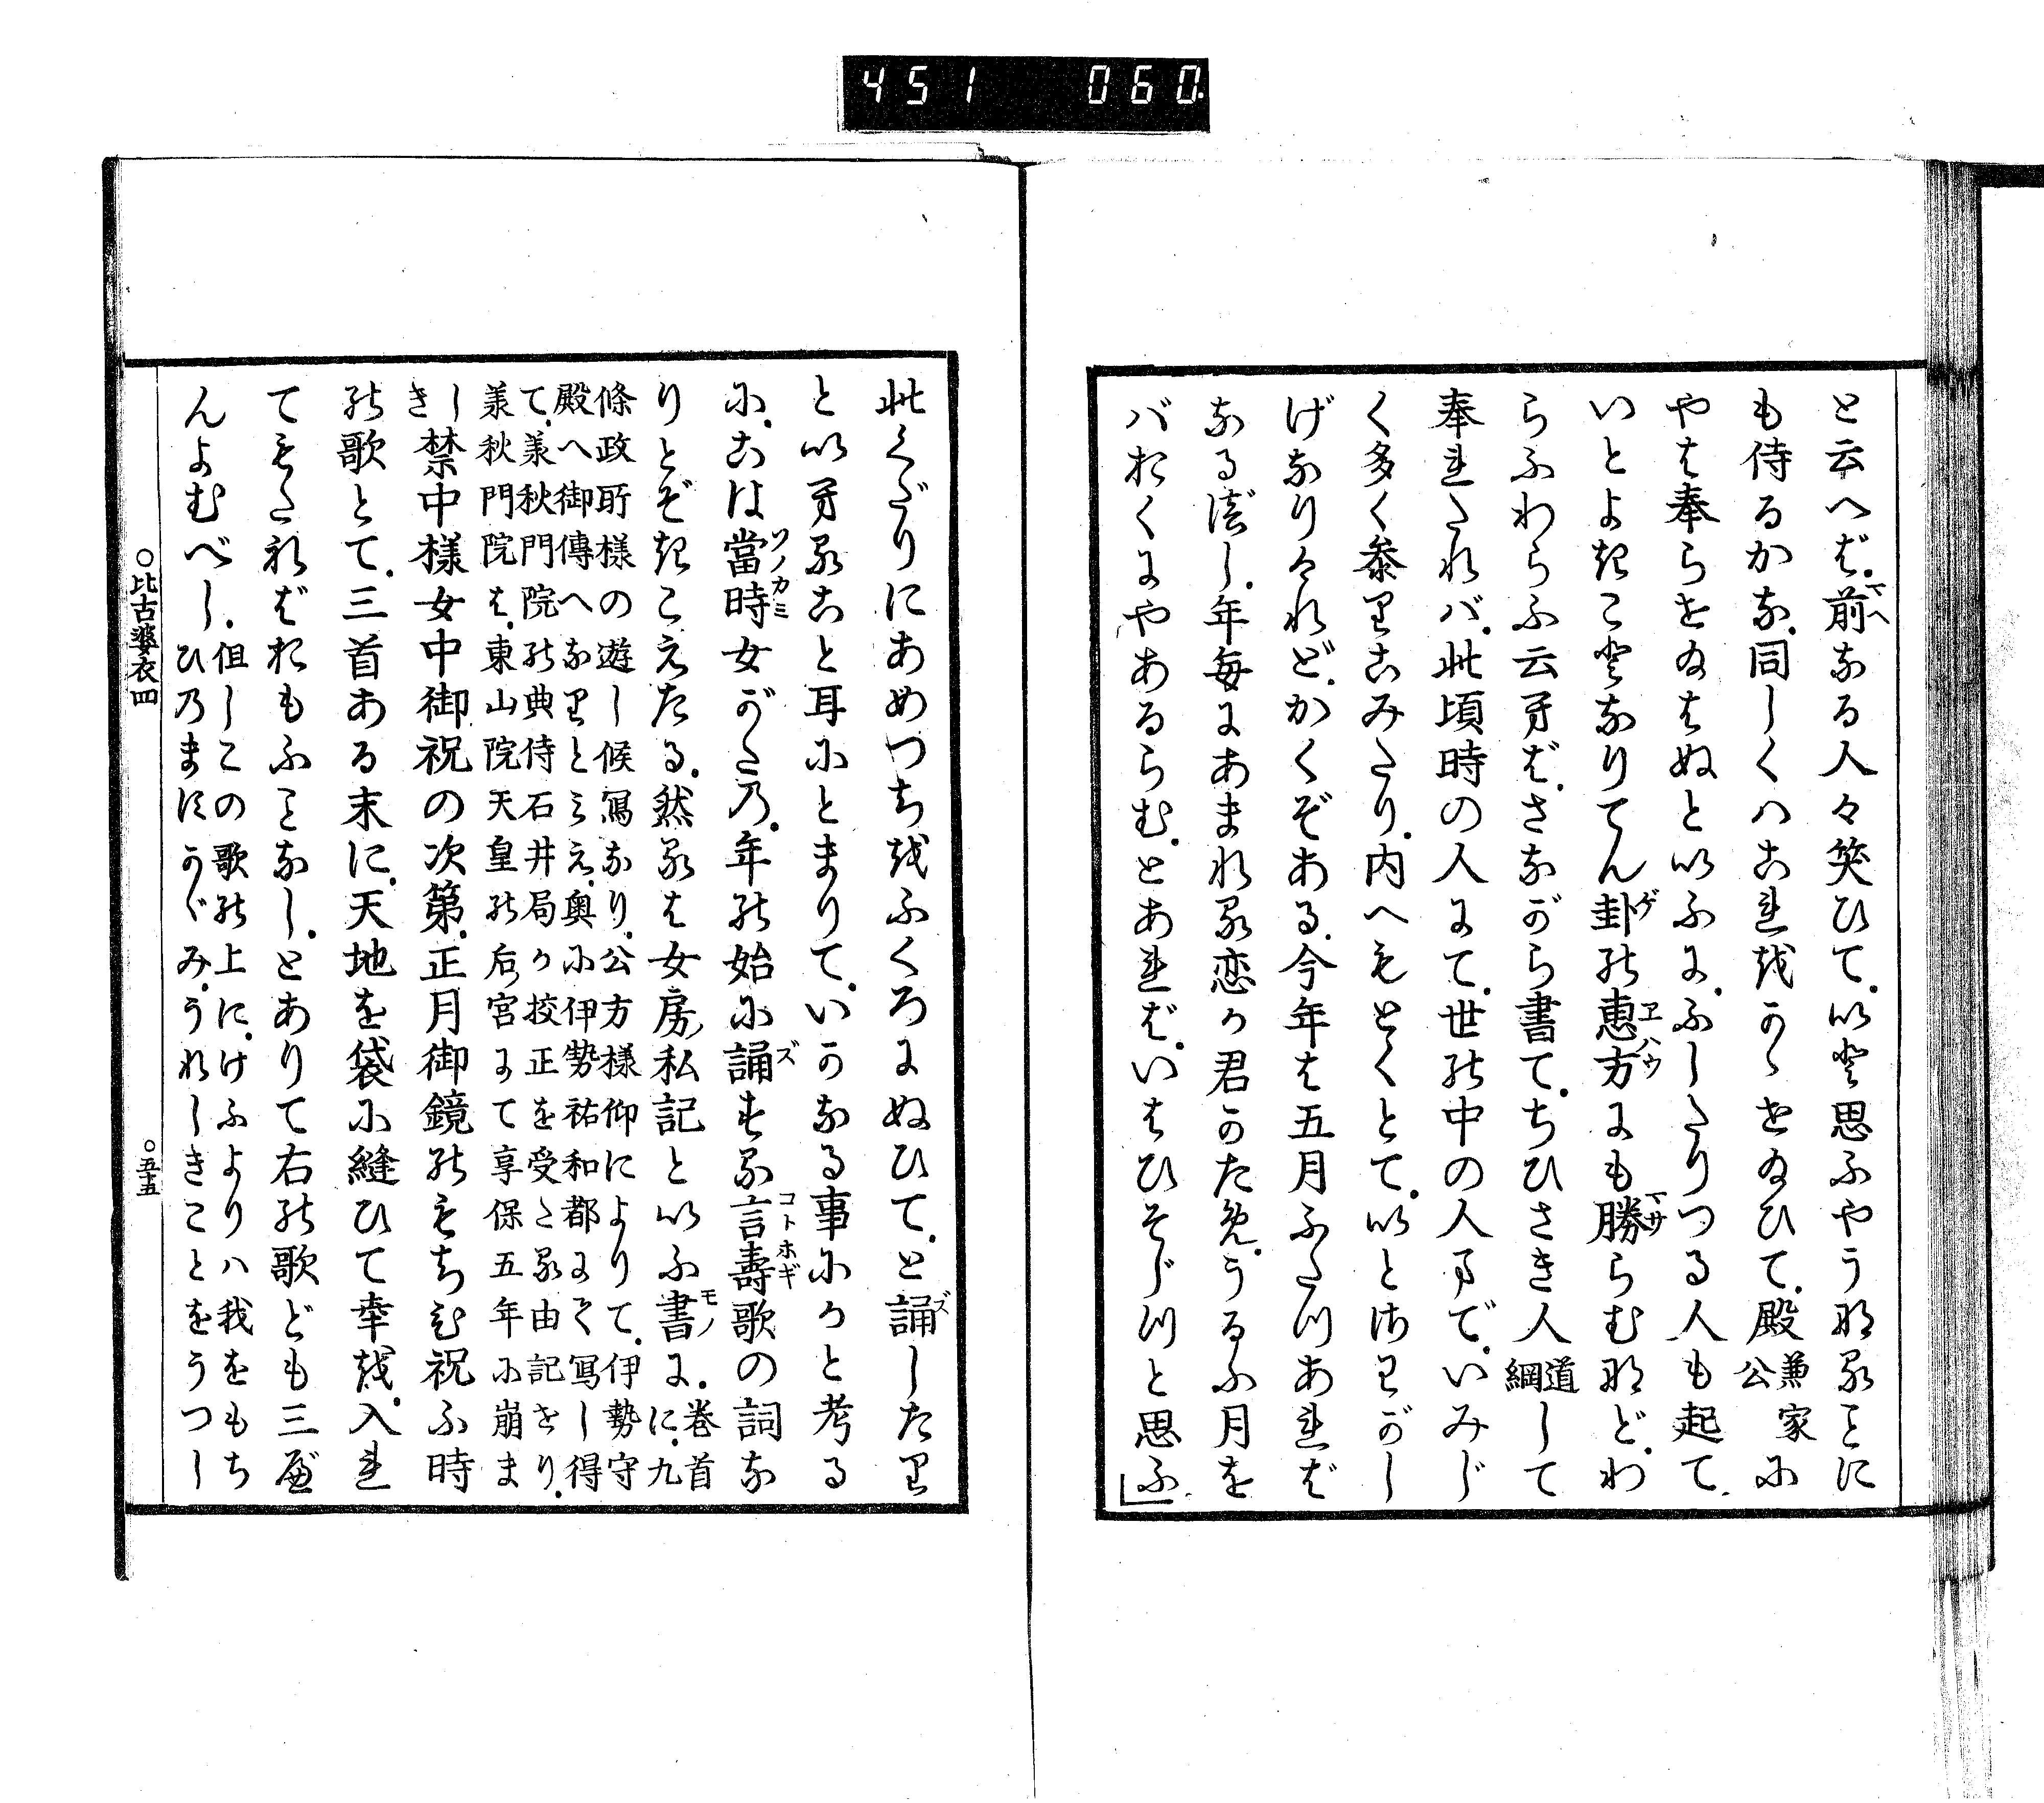 451 060
と云へば。前なる人々笑ひて。いと思ふやうなることに
も侍るかな。同しくハこれをかゝせ給ひて。殿兼家公に
やは奉らせ給はぬといふに。ふしたりつる人も起て。
いとよきことなりてん卦の恵方にも勝らむなど。わ
らふわらふ云へば。さながら書て。ちひさき人道綱して
奉れたれバ。此頃時の人にて。世の中の人まで。いみじ
く多く参りこみたり。内へもとくとて。いとさわがし
げなりけれど。かくぞある。今年は五月ふたつあれば
なるべし。年毎にあまれる恋か君かためうるふ月を
バおくにやあるらむ。とあれば。いはひそしつと思ふ」
此くだりにあめつちをふくろにぬひて。と誦したり
といへること耳にとまりて。いかなる事にかと考る
に。こは當時女がたの。年の始に誦する言壽歌の詞な
りとぞきこえたる。然るは女房私記といふ書に。巻首に、九
條政所様の遊し候寫なり。公方様仰によりて。伊勢守
殿へ御傳へなりとみえ。奥に伊勢祐和都にて寫し得
て。美秋門院の典侍石井局か授正を受たる由記せり。
美秋門院は。東山院天皇の后宮にて享保五年に崩ま
しき禁中様女中御祝の次第。正月御鏡のもちひ祝ふ時
の歌とて。三首ある末に。天地を袋に縫ひて幸を。入れ
てもたればおもふことなし。とありて右の歌ども三遍
んよむべし。但しこの歌の上に。けふよりハ我をもち
ひのますかゞみ。うれしきことをうつし
○比古婆衣四
○五十五